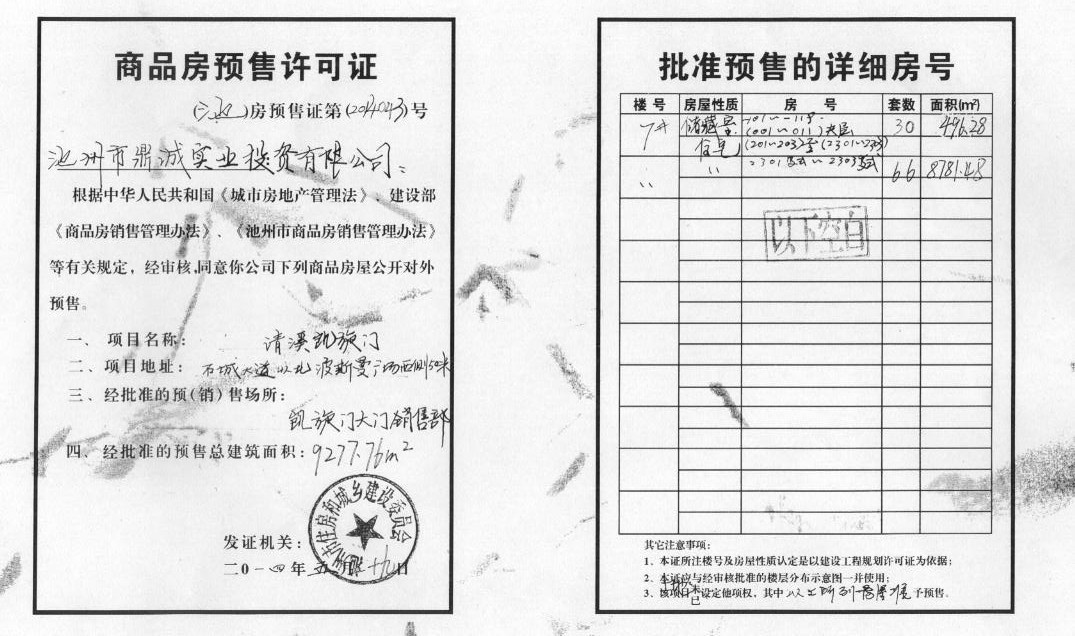 商品房预售许可证
(池)房预售证第(2014043)号
池州市鼎诚实业投资有限公司:
根据中华人民共和国《城市房地产管理法》、建设部
《商品房销售管理办法》、《池州市商品房销售管理办法》
等有关规定，经审核,同意你公司下列商品房屋公开对外
预售。
一、 项目名称: 清溪凯旋门
二、项目地址: 石城大道以北波斯曼广场西侧50米
三、经批准的预(销)售场所:
凯旋门大门销售部
四、经批准的预售总建筑面积: 9277.76m²
池州市住房和城乡建设委员会
发证机关:
二0一四年五月二十九日
批准预售的详细房号
楼号 房屋性质 房号 套数 面积(m²)
7# 储藏室 (001～011)夹层 30 496.28
住宅 (201～203)至(2301～2303)
〃 〃 2301跃式～2303跃式 66 8781.48
以下空白
其它注意事项:
1．本证所注楼号及房屋性质认定是以建设工程规划许可证为依据;
2．本证应与经审核批准的楼层分布示意图一并使用;
3．该项目未已设定他项权，其中以上所列房屋准予预售。